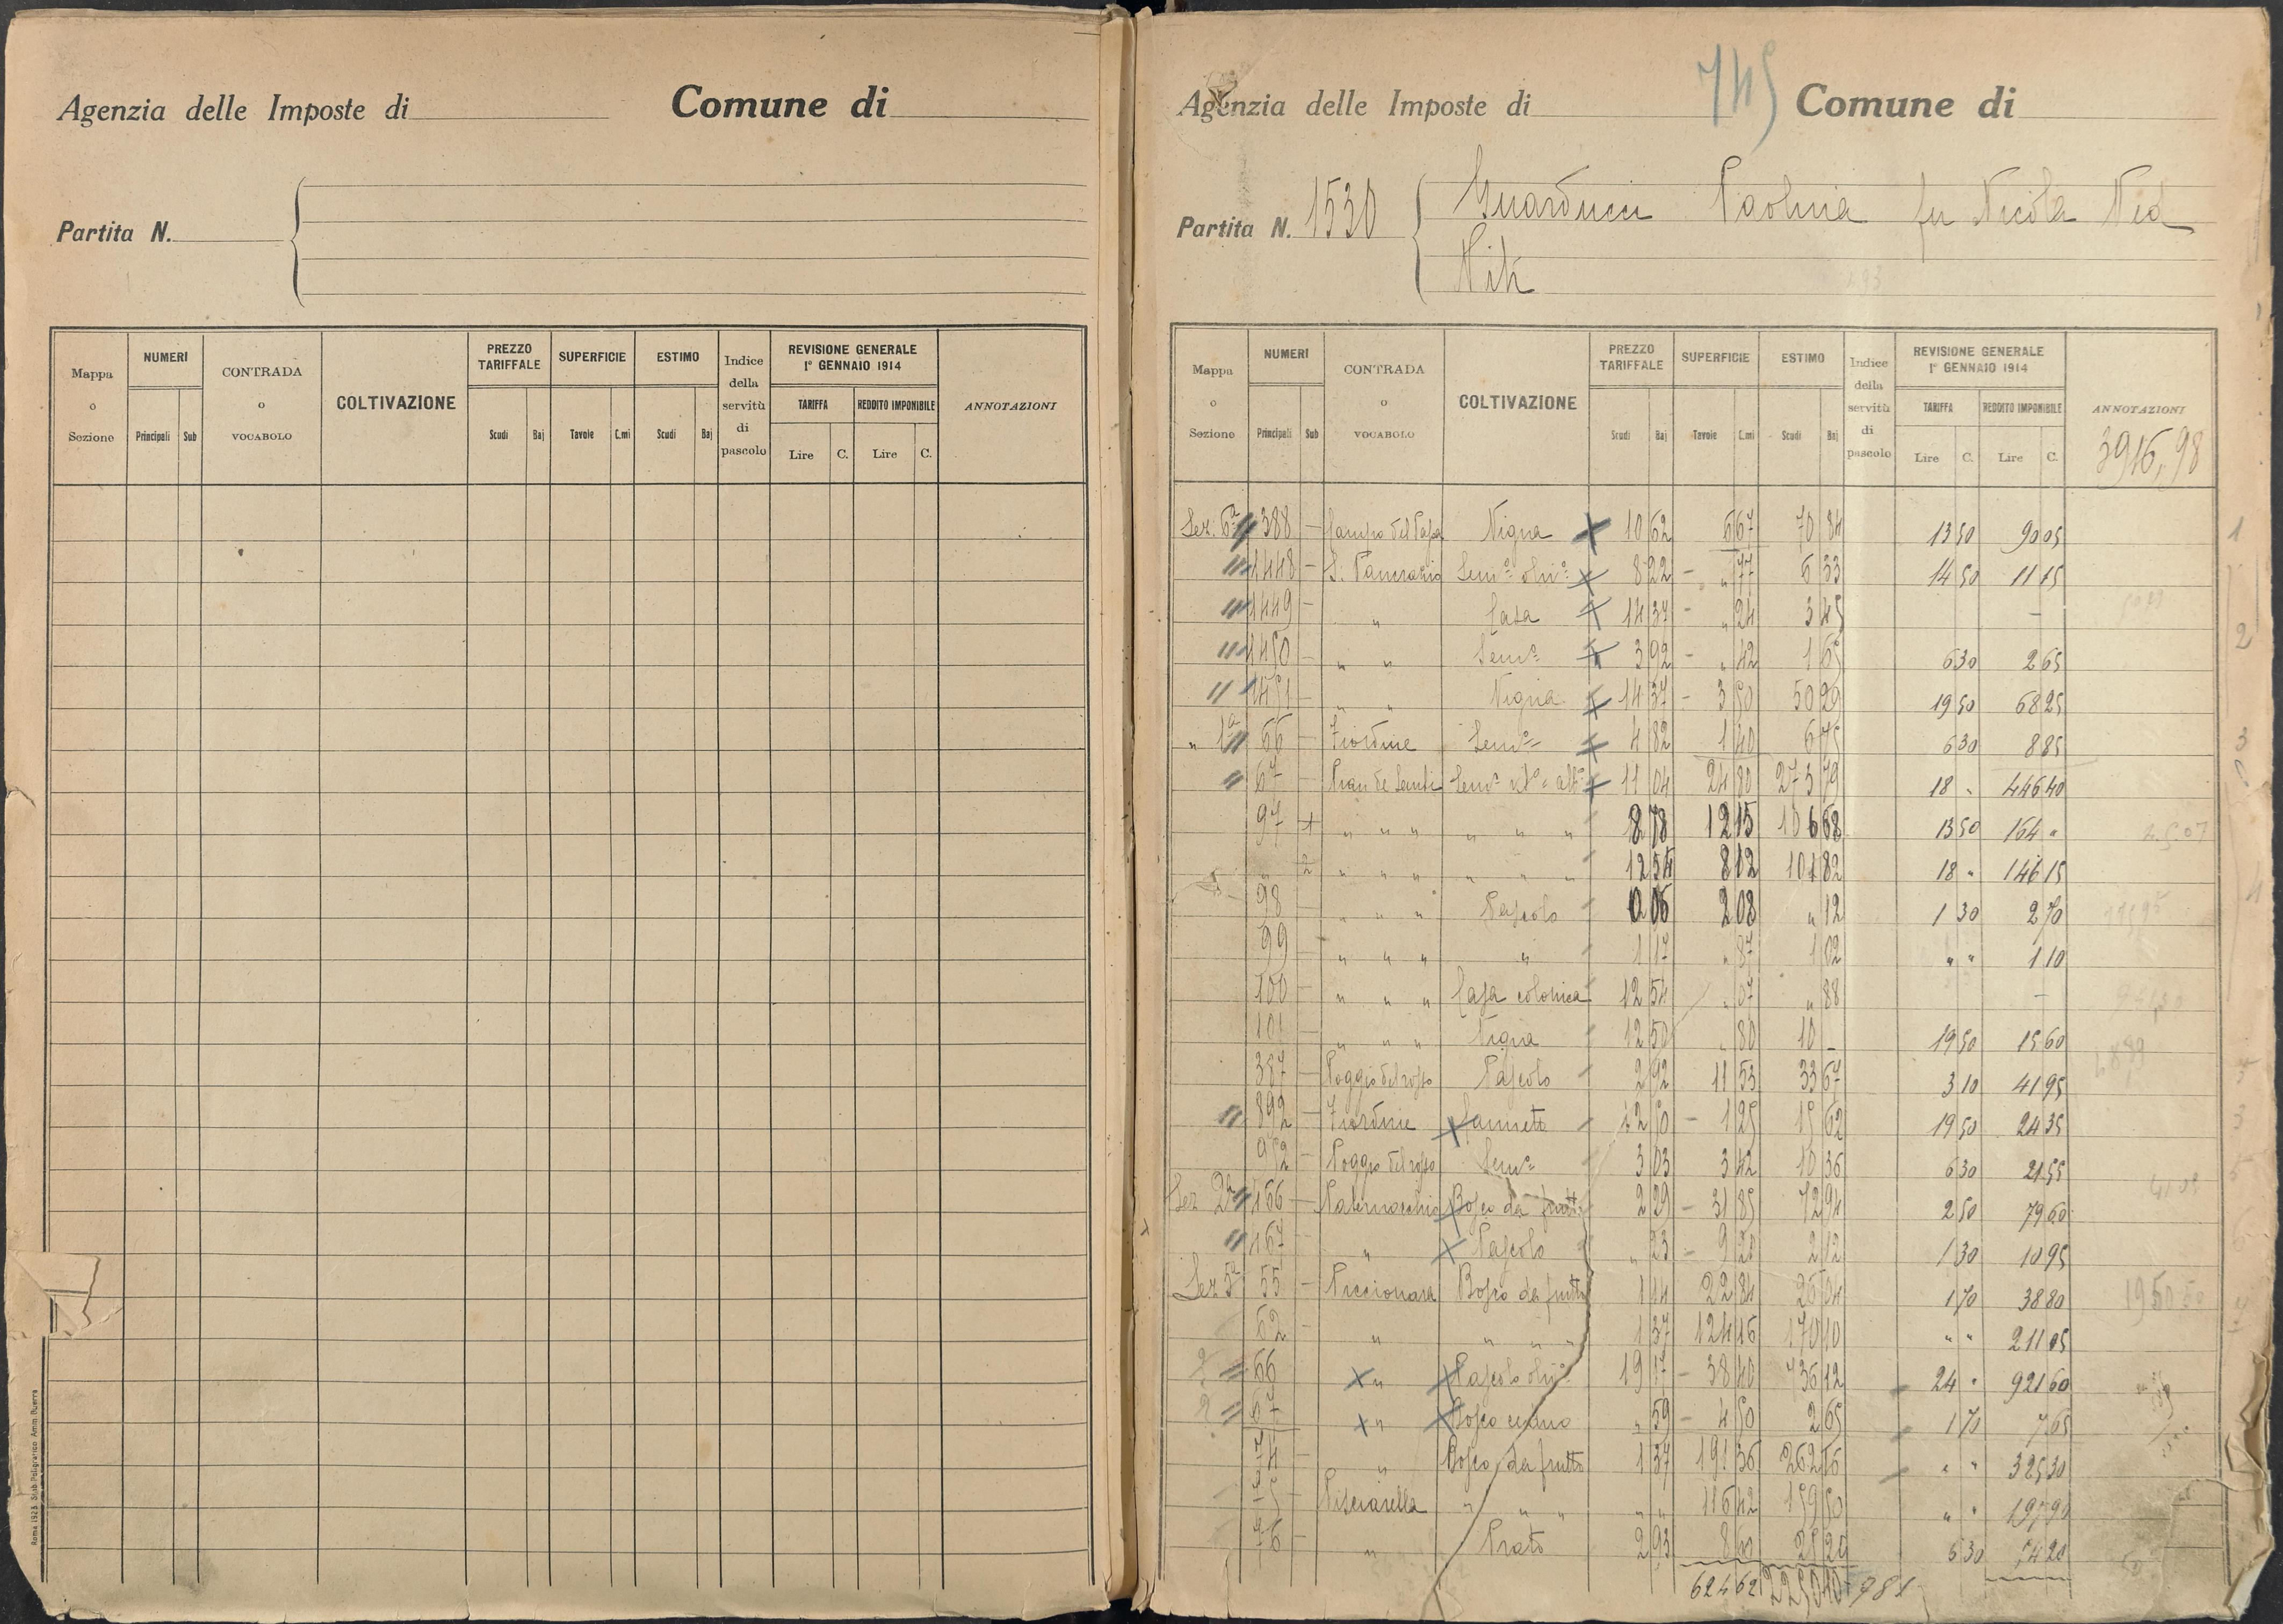 Agenzia delle Imposte di Comune di
Partita N.
Mappa o Sezione NUMERI Principali Sub CONTRADA o VOCABOLO COLTIVAZIONE PREZZO TARIFFALE Scudi Baj SUPERFICIE Tavole C.mi ESTIMO Scudi Baj Indice della servitù di pascolo REVISIONE GENERALE 1° GENNAIO 1914 TARIFFA Lire C. REDDITO IMPONIBILE Lire C. ANNOTAZIONI
Roma 1923. Stab. Poligrafico Amm. Guerra
745
Agenzia delle Imposte di Comune di
Partita N. 1530 Guarducci Paolina fu Nicola Ved
Mappa o Sezione NUMERI Principali Sub CONTRADA o VOCABOLO COLTIVAZIONE PREZZO TARIFFALE Scudi Baj SUPERFICIE Tavole C.mi ESTIMO Scudi Baj Indice della servitù di pascolo REVISIONE GENERALE 1° GENNAIO 1914 TARIFFA Lire C. REDDITO IMPONIBILE Lire C. ANNOTAZIONI
3916,98
Sez. 6a 388 – Campo del Papa Vigna 10 62 6 67 70 84 13 50 90 05
1448 – S. Pancrazio Semo olivo 8 22 – " 77 6 33 14 50 11 15
1449 – " Casa 14 37 – " 24 3 45 –
1450 – " " Semo 3 92 – " 42 1 65 6 30 2 65
1451 – " " Vigna 14 37 – 3 50 50 29 19 50 68 25
" 1a 66 – Semo 4 82 1 40 6 75 6 30 8 85
67 – 11 04 24 80 273 79 18 " 446 40
97 1 " " " " " " 8 78 12 15 106 68 13 50 164 "
" 2 " " " " " " 12 54 8 12 101 82 18 " 146 15
98 – " " " Pascolo 0 06 2 08 " 12 1 30 2 70
99 – " " " " 1 17 " 87 1 02 " " 1 10
100 – " " " Casa colonica 12 54 " 07 " 88 –
101 – " " " Vigna 12 50 " 80 10 – 19 50 15 60
387 – Poggio del rosso Pascolo 2 92 11 53 33 67 3 10 41 95
892 – Canneto 12 50 – 1 25 15 62 19 50 24 35
952 – Poggio del rosso Semo 3 03 3 42 10 36 6 30 21 55
Sez 2a 166 – Bosco da frutto 2 29 – 31 85 72 94 2 50 79 60
167 " Pascolo " 23 – 9 20 2 12 1 30 10 95
Sez 5a 55 – Piccionara Bosco da frutto 1 14 22 84 26 04 1 70 38 80
62 – " " " " 1 37 124 16 170 10 " " 211 05
66 " Pascolo olivo 19 17 – 38 40 736 12 24 " 921 60
67 " Bosco ceduo " 59 – 4 50 2 65 1 70 7 65
74 – " Bosco da frutto 1 37 191 36 262 16 " " 325 30
75 – Pisciarella " " " " " 116 42 159 50 " " 197 90
76 – " Prato 2 93 8 60 25 20 6 30 54 20
624 62